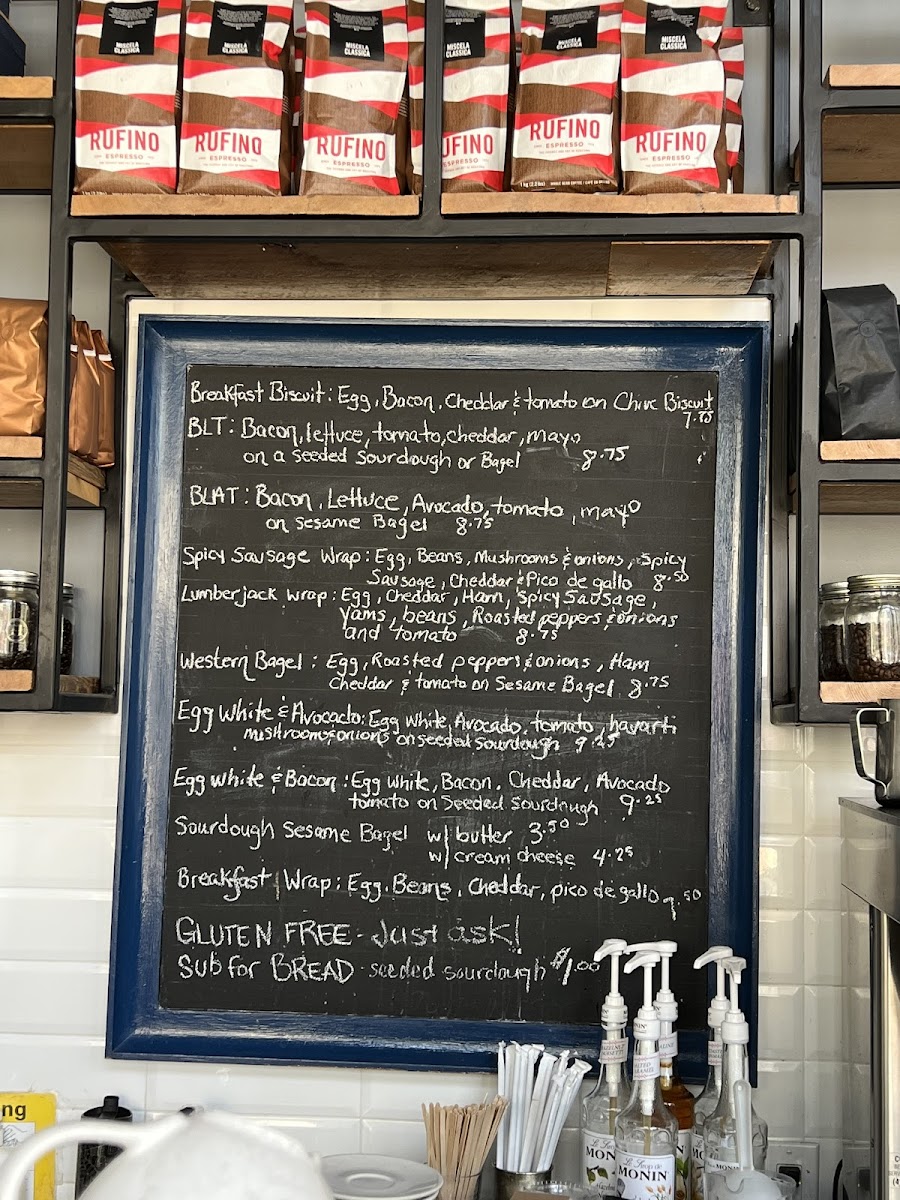 MISCELA CLASSICA
MISCELA CLASSICA
MISCELA CLASSICA
MISCELA CLASSICA
MISCELA CLASSICA
MISCELA CLASSICA
RUFINO
ESPRESSO
RUFINO
ESPRESSO
RUFINO
ESPRESSO
UFINO
ESPRESSO
RUFINO
ESPRESSO
RUFINO
ESPRESSO
Breakfast Biscuit: Egg, Bacon, Cheddar & tomato on Chive Biscuit
7.85
BLT: Bacon, lettuce, tomato, cheddar, mayo
on a Seeded Sourdough or Bagel 8.75
BLAT: Bacon, Lettuce, Avocado, tomato, mayo
on Sesame Bagel 8.75
Spicy Sausage Wrap: Egg, Beans, Mushrooms & onions, Spicy
Sausage, Cheddar & Pico de gallo 8.50
Lumberjack wrap: Egg, Cheddar, Ham, Spicy Sausage,
Yams, beans, Roasted peppers & onions
and tomato 8.75
Western Bagel: Egg, Roasted peppers & onions, Ham
Cheddar & tomato on Sesame Bagel 8.75
Egg White & Avocado: Egg White, Avocado, tomato, havarti
mushrooms & onions on seeded sourdough 9.25
Egg white & Bacon: Egg White, Bacon, Cheddar, Avocado
tomato on Seeded Sourdough 9.25
Sourdough Sesame Bagel w/ butter 3.50
w/ cream cheese 4.25
Breakfast Wrap: Egg, Beans, Cheddar, pico de gallo 7.50
GLUTEN FREE - Just ask!
Sub for BREAD - seeded sourdough $1.00
ng
MONIN